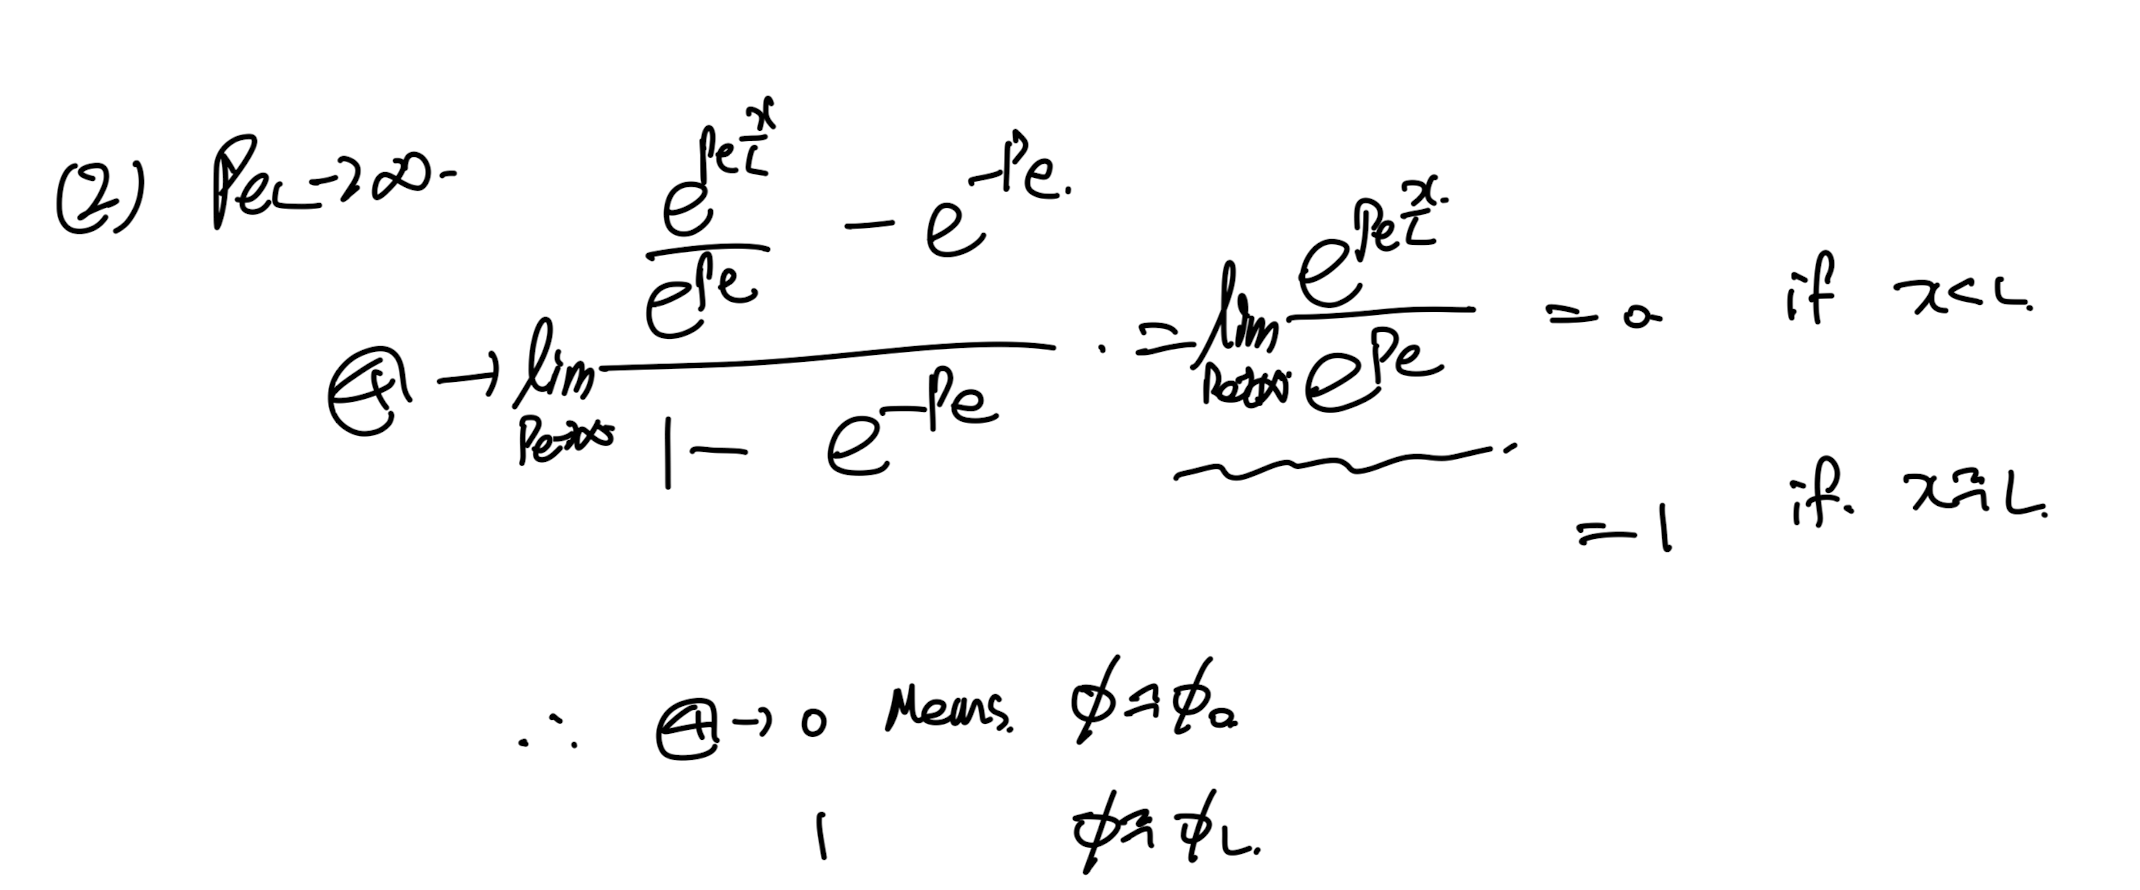 (2) Pe_L → ∞.
Ⓐ → lim_{Pe→∞} (e^{Pe x/L} / e^{Pe} − e^{−Pe}) / (1 − e^{−Pe}) = lim_{Pe→∞} e^{Pe x/L} / e^{Pe} = 0 if x < L.
= 1 if. x ≈ L.
∴ Ⓐ → 0 Means. ϕ ≈ ϕ_0
1 ϕ ≈ ϕ_L.